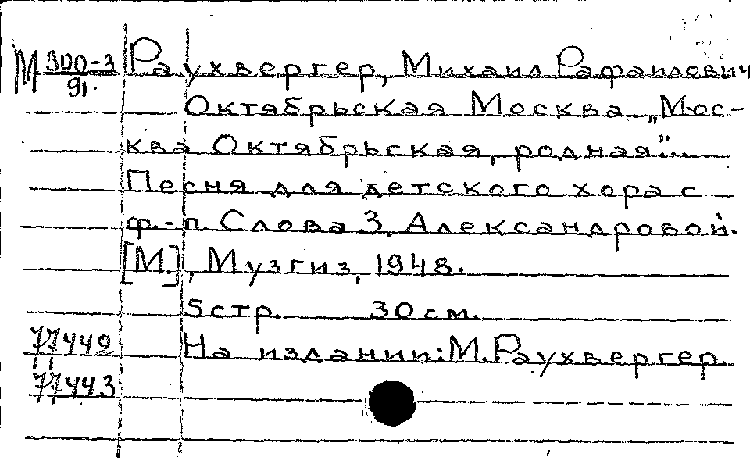 М 300-3
91.
Раухвергер, Михаил Рафаилович
Октябрьская Москва „Мос-
ква Октябрьская, родная"...
Песня для детского хора с
ф.-п. Слова З. Александровой.
[М.], Музгиз, 1948.
5 стр. 30 см.
77442 На издании: М. Раухвергер
77443